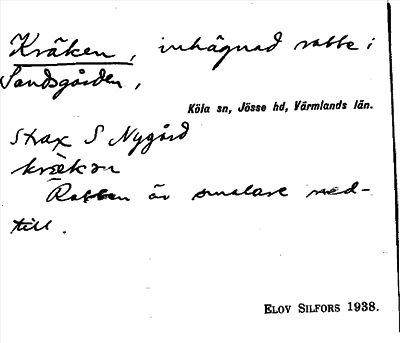 Kräken, inhägnad rabbe i
Sandsgården,
Köla sn, Jösse hd, Värmlands län.
Strax S Nygård
Rabben är smalare ned-
till.
ELOV SILFORS 1938.